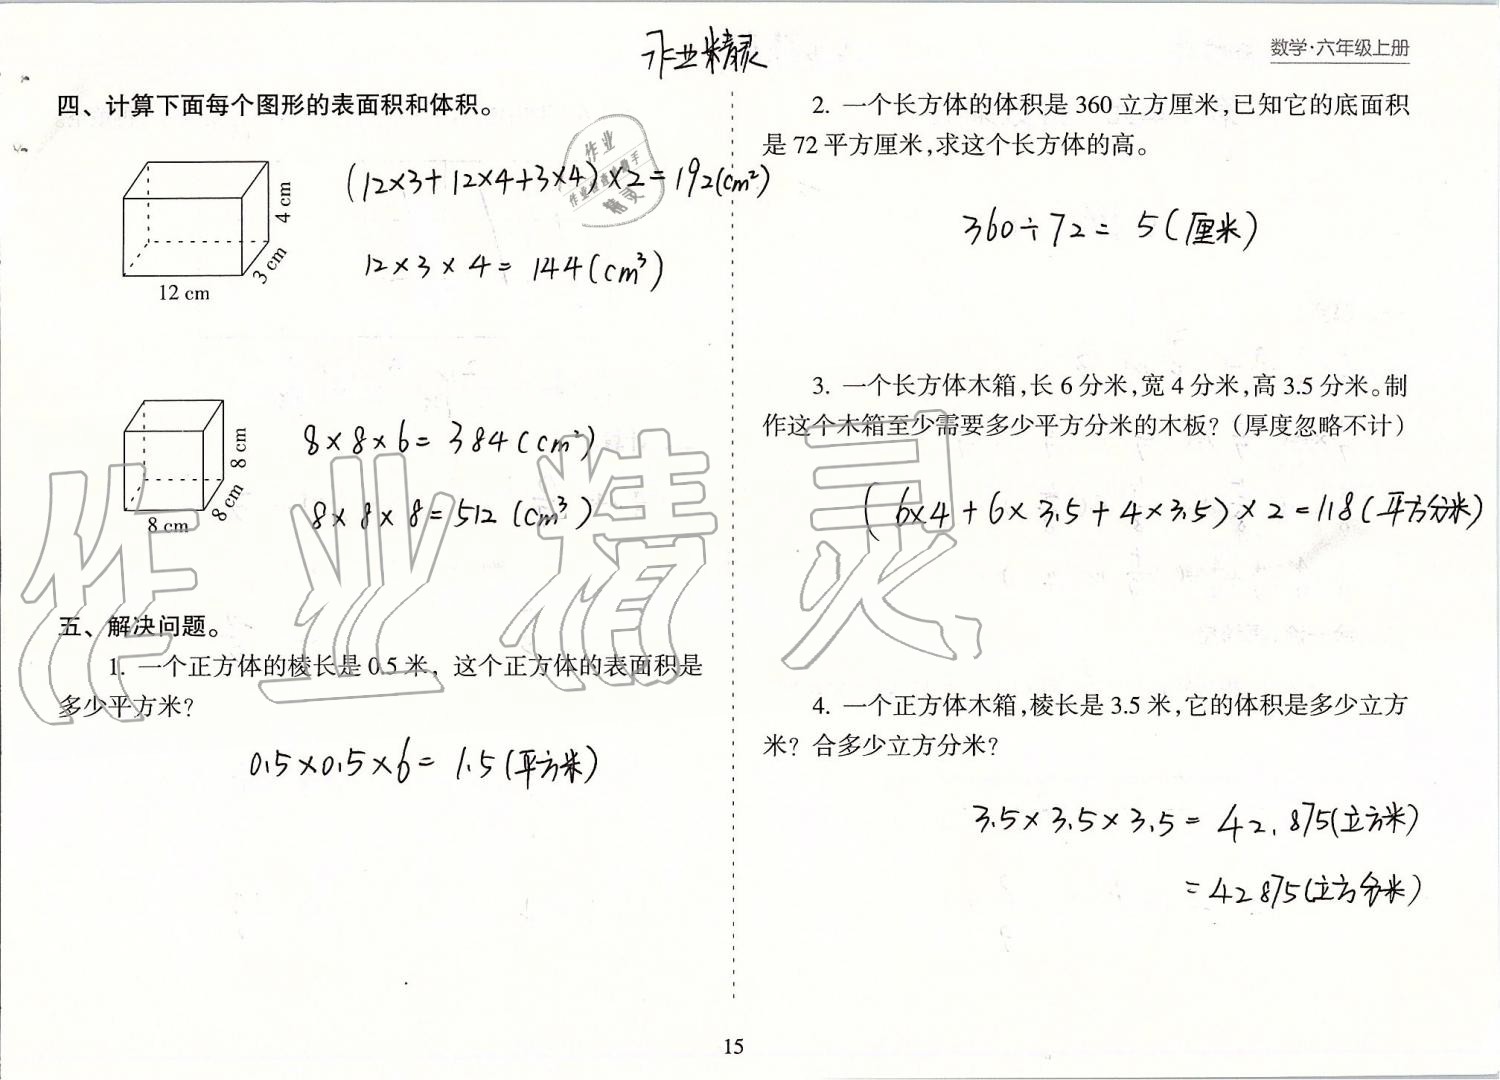 作业精灵
数学·六年级上册
四、计算下面每个图形的表面积和体积。
作业
精灵
4 cm
3 cm
12 cm
(12×3+12×4+3×4)×2=192(cm²)
12×3×4=144(cm³)
8 cm
8 cm
8 cm
8×8×6=384(cm²)
8×8×8=512(cm³)
五、解决问题。
1. 一个正方体的棱长是 0.5 米，这个正方体的表面积是
多少平方米？
0.5×0.5×6=1.5(平方米)
2. 一个长方体的体积是 360 立方厘米，已知它的底面积
是 72 平方厘米，求这个长方体的高。
360÷72=5(厘米)
3. 一个长方体木箱，长 6 分米，宽 4 分米，高 3.5 分米。制
作这个木箱至少需要多少平方分米的木板？（厚度忽略不计）
(6×4+6×3.5+4×3.5)×2=118(平方分米)
4. 一个正方体木箱，棱长是 3.5 米，它的体积是多少立方
米？合多少立方分米？
3.5×3.5×3.5=42.875(立方米)
=42875(立方分米)
作业精灵
15